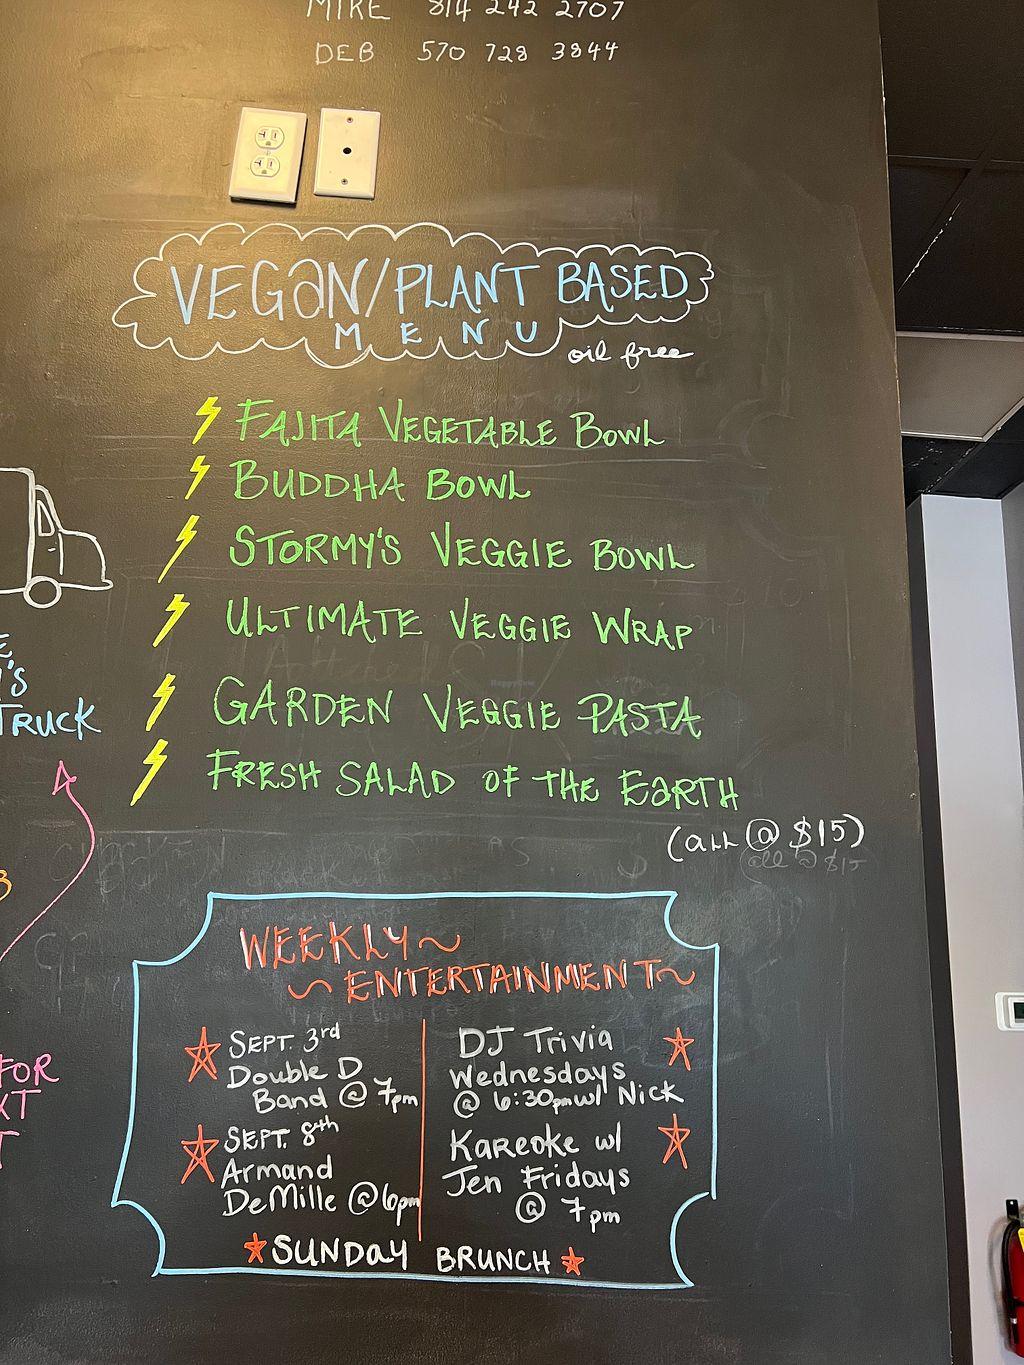 MIKE 814 242 2707
DEB 570 728 3844
VEGAN/PLANT BASED
MENU
oil free
FAJITA VEGETABLE BOWL
BUDDHA BOWL
STORMY'S VEGGIE BOWL
ULTIMATE VEGGIE WRAP
GARDEN VEGGIE PASTA
FRESH SALAD OF THE EARTH
(all @ $15)
all @ $15
TRUCK
WEEKLY
ENTERTAINMENT
SEPT. 3rd
Double D
Band @ 7pm
SEPT. 8th
Armand
DeMille @ 6pm
DJ Trivia
Wednesdays
@ 6:30pm w/ Nick
Kareoke w/
Jen Fridays
@ 7pm
SUNDAY BRUNCH
FOR